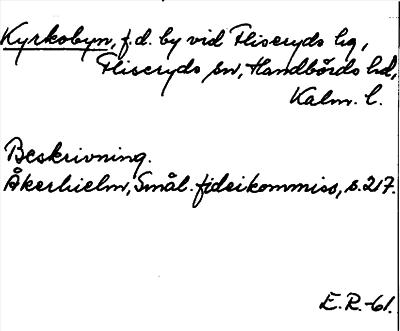 Kyrkobyn, f.d. by vid Fliseryds kg,
Fliseryds sn, Handbörds hd,
Kalm. l.
Beskrivning.
Åkerhielm, Smål. fideikommiss, s. 217.
E.R.-61.